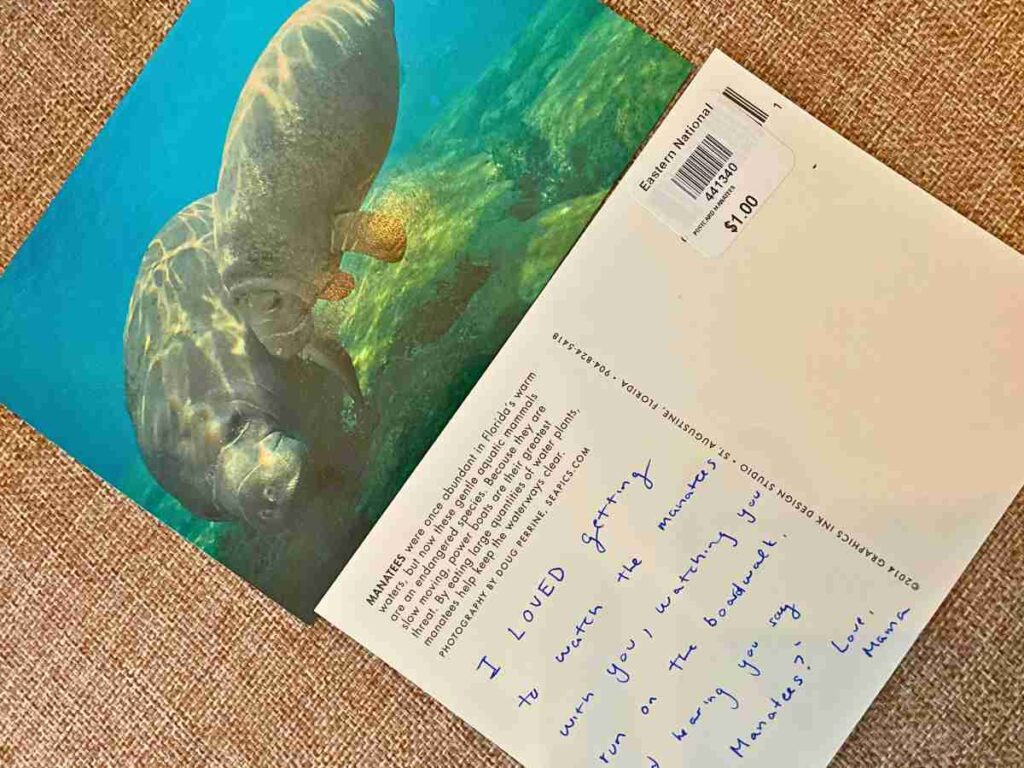 Eastern National
441340
POSTCARD MANATEES
$1.00
1
MANATEES were once abundant in Florida's warm
waters, but now these gentle aquatic mammals
are an endangered species. Because they are
slow moving, power boats are their greatest
threat. By eating large quantities of water plants,
manatees help keep the waterways clear.
PHOTOGRAPHY BY DOUG PERRINE, SEAPICS.COM
©2014 GRAPHICS INK DESIGN STUDIO • ST. AUGUSTINE, FLORIDA • 904-824-5418
I LOVED getting
to watch the manatees
with you, watching you
run on the boadwalk,
hearing you say
Manatees?"
Love,
Mama